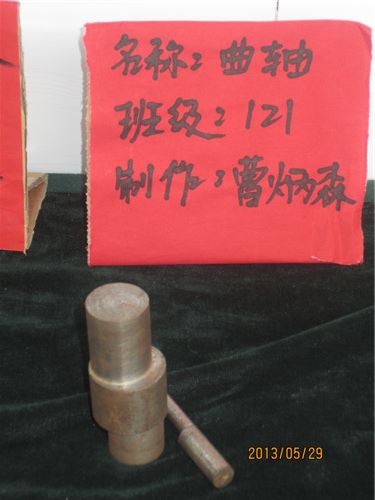 名称：曲轴
班级：121
制作：曹炳森
2013/05/29